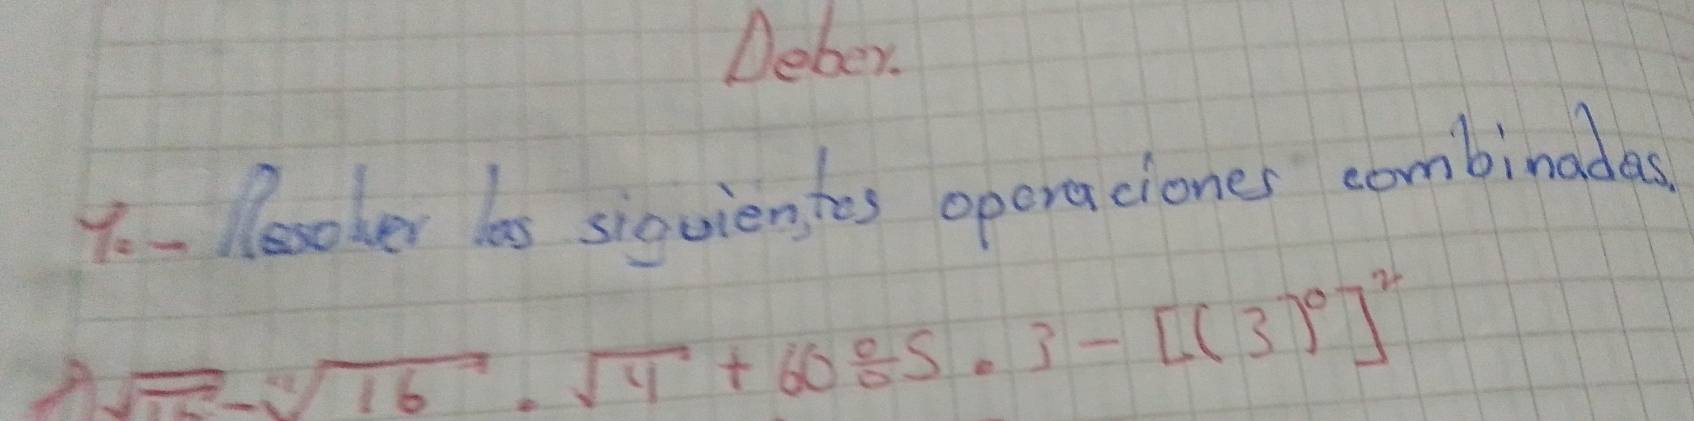 Deber.
1.- Resolver las siguientes operaciones combinadas.
√16 - ∜16 . √4 + 60 ÷ 5 . 3 - [(3)⁰]²